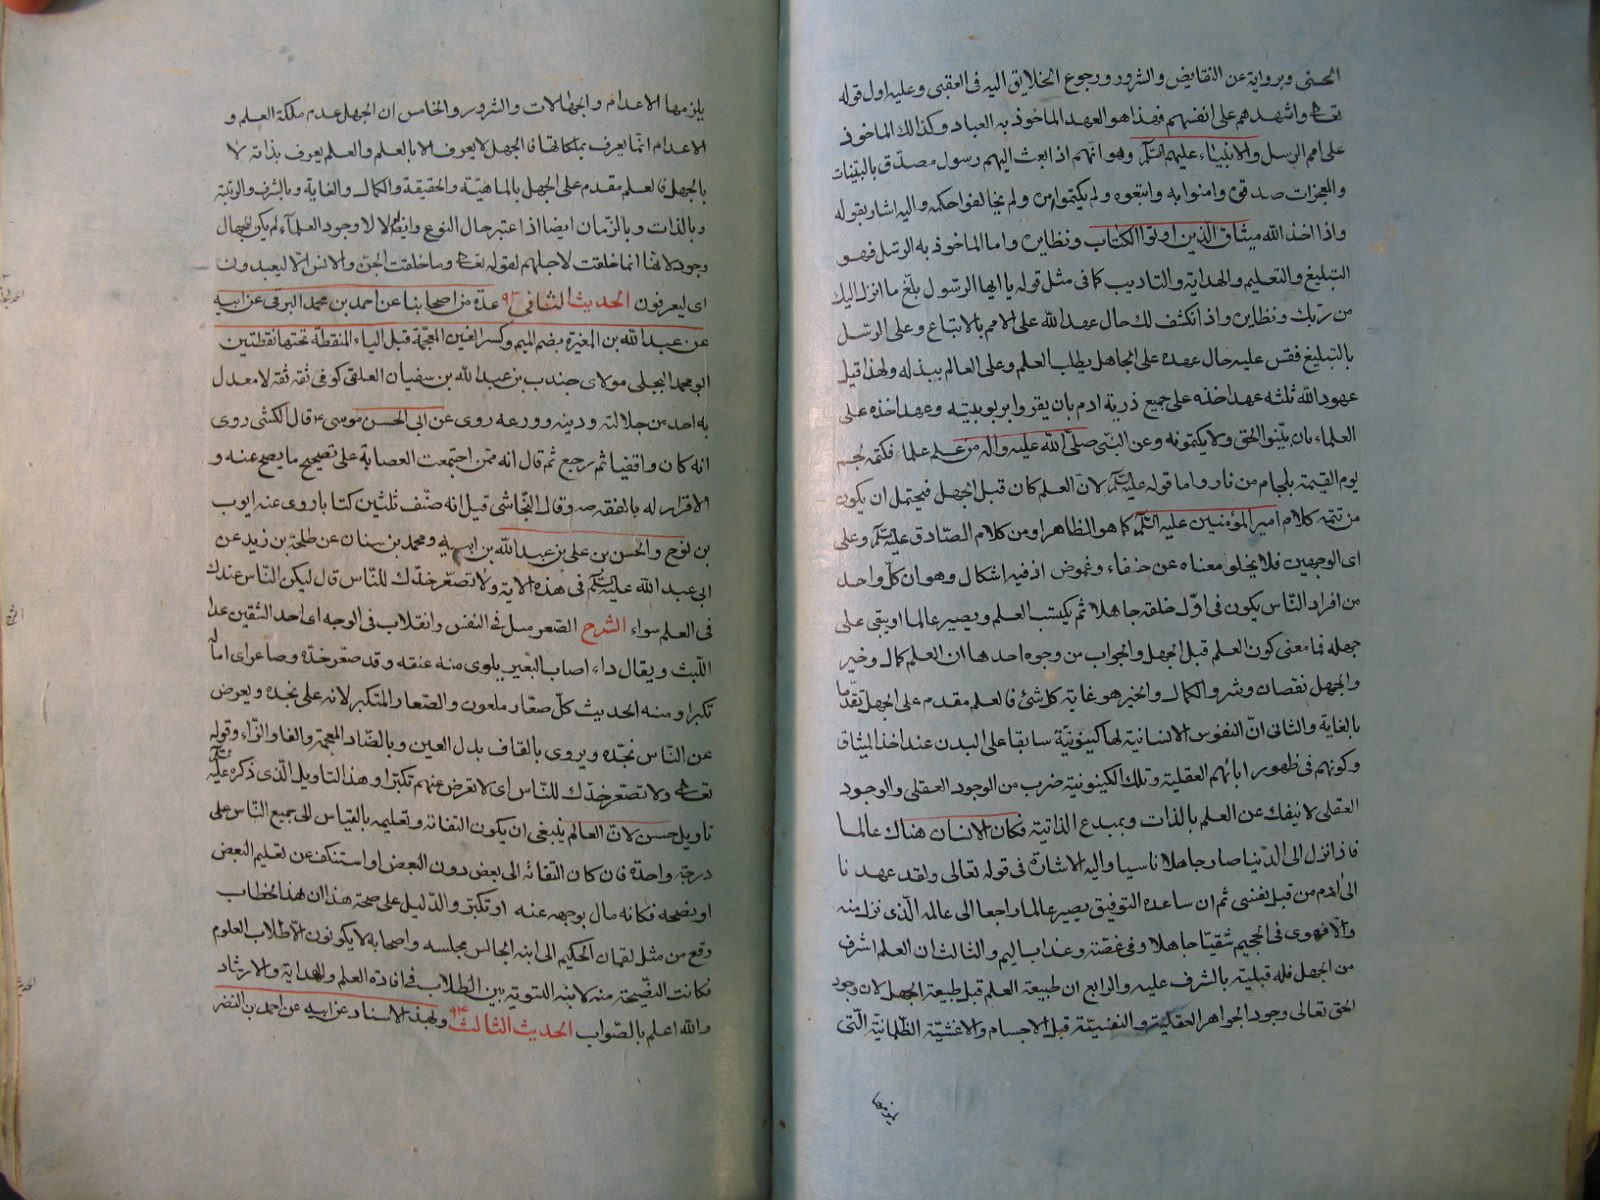 الحسنى وبروايه عن النقايض والشرور ورجوع الخلايق اليه فى العقبى وعليه اول قوله
تعالى واشهدهم على انفسهم فهذا هو العهد الماخوذ به العباد وكذالك الماخوذ
على امم الرسل والانبياء عليهم السلام وهو انهم اذا بعث اليهم رسول مصدّق بالبيّنات
والمعجزات صدقوه وامنوا به واتبعوه ولم يكتموا امره ولم يخالفوا حكمه واليه اشار بقوله
واذ اخذ الله ميثاق الذين اوتوا الكتاب ونظايره واما الماخوذ به الرسل فهو
التبليغ والتعليم والهداية والتاديب كما فى مثل قوله يا ايها الرسول بلّغ ما انزل اليك
من ربّك ونظايره واذ انكشف لك حال عهد الله على الامم بالاتباع وعلى الرسل
بالتبليغ فقس عليه حال عهده على الجاهل بطلب العلم وعلى العالم ببذله ولهذا قيل
عهود الله ثلثه عهد اخذه على جميع ذرية ادم بان يقروا بربوبيته وعهد اخذه على
العلماء بان يبيّنوا الحق ولا يكتمونه وعن النبى صلّى الله عليه واله من علم علما فكتمه لجم
يوم القيمة بلجام من نار واما قوله عليه السلام لانّ العلم كان قبل الجهل فيحتمل ان يكون
من تتمه كلام امير المؤمنين عليه السلام كما هو الظاهر او من كلام الصّادق عليه السلام وعلى
اى الوجهين فلا يخلو معناه عن خفاء وغموض اذ فيه اشكال وهو ان كلّ واحد
من افراد النّاس يكون فى اوّل خلقه جاهلا ثم يكتسب العلم ويصير عالما او يبقى على
جهله فما معنى كون العلم قبل الجهل والجواب من وجوه احدها ان العلم كمال وخير
والجهل نقصان وشر والكمال والخير هو غاية كل شئ فالعلم مقدم على الجهل تقدّما
بالغاية والثانى انّ النفوس الانسانية لها كينونيّة سابقا على البدن عند اخذ الميثاق
وكونهم فى ظهور ابائهم العقلية وتلك الكينونية ضرب من الوجود العقلى والوجود
العقلى لا ينفك عن العلم بالذات وبمبدع الذاتية فكان الانسان هناك عالما
فاذا نزل الى الدّنيا صار جاهلا ناسيا واليه الاشارة فى قوله تعالى ولقد عهدنا
الى ادم من قبل فنسى ثم ان ساعده التوفيق يصير عالما راجعا الى عالمه الّذى نزل منه
والا فهوى فى الجحيم شقيّا جاهلا وفى غصّة وعذاب اليم والثالث ان العلم اشرف
من الجهل فله قبلية بالشرف عليه والرابع ان طبيعة العلم قبل طبيعة الجهل لان وجود
الحق تعالى وجود الجواهر العقلية والنفسيّة قبل الاجسام والاغشيّة الظلمانيّة الّتى
يلزمها
يلزمها الاعدام والجهالات والشرور والخامس ان الجهل عدم ملكة العلم و
الاعدام انّما يعرف بملكاتها فالجهل لا يعرف الا بالعلم والعلم يعرف بذاته لا
بالجهل فالعلم مقدم على الجهل بالماهيّة والحقيقة والكمال والغاية وبالشرف والرتبة
وبالذات وبالزّمان ايضا اذا عتبر حال النوع وايضا لو لا وجود العلمآء لم يكن للجهال
وجود لانها انما خلقت لاجلهم لقوله تعالى وما خلقت الجنّ والانس الا ليعبدون
اى ليعرفون الحديث الثانى ٩٣ عدّة من اصحابنا عن احمد بن محمد البرقى عن ابيه
عن عبد الله بن المغيرة بضم الميم وكسر الغين المعجمة قبل الياء المنقطة تحتها نقطتين
ابو محمد البجلى مولاى جندب بن عبد الله بن سفيان العلقى كوفى ثقه ثقه لا معدل
به احد من جلالته ودينه وورعه روى عن ابى الحسن موسى ع قال الكشى روى
انه كان واقفيا ثم رجع ثم قال انه ممن اجتمعت العصابة على تصحيح ما يصح عنه و
الاقرار له بالفقه صه وقال النّجاشى قيل انه صنّف ثلثين كتابا روى عنه ايوب
بن نوح والحسن بن على بن عبد الله بن ابيه ومحمد بن سنان عن طلحة بن زيد عن
ابى عبد الله عليه السلام فى هذه الاية ولا تصعّر خدّك للنّاس قال ليكن النّاس عندك
فى العلم سواء الشرح الصّعر ميل فى النفس وانقلاب فى الوجه اى احد الشقين عن
اللّيث ويقال داء اصاب البعير يلوى منه عنقه وقد صعّر خدّه وصاعر اى اماله
تكبرا ومنه الحديث كلّ صعّار ملعون والصّعار المتكبر لانه على نجده ويعرض
عن النّاس نجدّه ويروى بالقاف بدل العين وبالضّاد المعجمة والفا والزّاء وقوله
تعالى ولا تصعّر خدّك للنّاس اى لا تعرض عنهم تكبّرا وهذا التاويل الّذى ذكره عليه السلام
تاويل حسن لانّ العالم ينبغى ان يكون التفاته وتعليمه بالقياس الى جميع النّاس على
درجة واحدة فان كان التفاته الى بعض دون البعض او استنكف عن تعليم البعض
او نصحه فكانه مال بوجهه عنه او تكبّر والدّليل على صحة هذا ان هذا الخطاب
وقع من مثل لقمان الحكيم الى ابنه الجالس مجلسه واصحابه لا يكونون الّا طلاب العلوم
فكانت النصّيحة منه لابنه التسوية بين الطلاب فى افادة العلم والهداية والارشاد
والله اعلم بالصّواب الحديث الثالث ٩٤ وبهذا الاسناد عن ابيه عن احمد بن النضر
الشرح